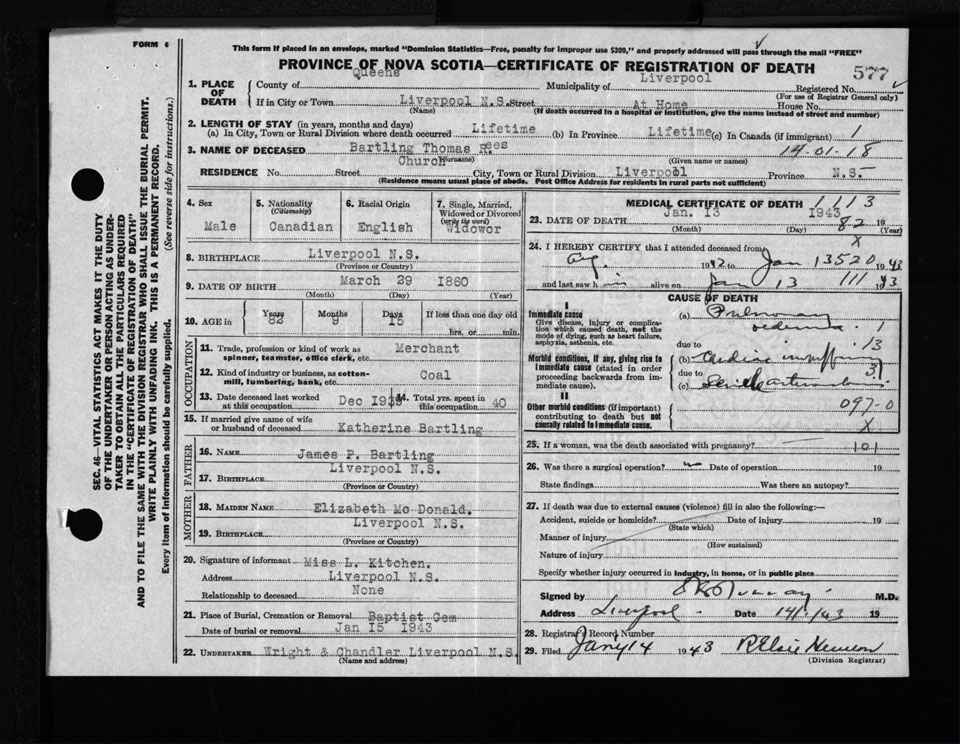 FORM 6
This form if placed in an envelope, marked "Dominion Statistics—Free, penalty for improper use $300," and properly addressed will pass through the mail "FREE"
PROVINCE OF NOVA SCOTIA—CERTIFICATE OF REGISTRATION OF DEATH
577
1. PLACE OF DEATH
County of Queens Municipality of Liverpool Registered No.
(For use of Registrar General only)
If in City or Town Liverpool N.S. Street At Home House No.
(Name) (If death occurred in a hospital or institution, give the name instead of street and number)
2. LENGTH OF STAY (in years, months and days)
(a) In City, Town or Rural Division where death occurred Lifetime (b) In Province Lifetime (c) In Canada (if immigrant) 1
3. NAME OF DECEASED Bartling Thomas Rees 14-01-18
(Surname) (Given name or names)
RESIDENCE No. Street Church City, Town or Rural Division Liverpool Province N.S.
(Residence means usual place of abode. Post Office Address for residents in rural parts not sufficient)
SEC. 46—VITAL STATISTICS ACT MAKES IT THE DUTY
OF THE UNDERTAKER OR PERSON ACTING AS UNDER-
TAKER TO OBTAIN ALL THE PARTICULARS REQUIRED
IN THE "CERTIFICATE OF REGISTRATION OF DEATH"
AND TO FILE THE SAME WITH THE DIVISION REGISTRAR WHO SHALL ISSUE THE BURIAL PERMIT.
WRITE PLAINLY WITH UNFADING INK. THIS IS A PERMANENT RECORD.
Every item of information should be carefully supplied. (See reverse side for instructions.)
4. Sex
Male
5. Nationality
(Citizenship)
Canadian
6. Racial Origin
English
7. Single, Married,
Widowed or Divorced
(write the word)
Widowor
8. BIRTHPLACE Liverpool N.S.
(Province or Country)
9. DATE OF BIRTH March 29 1860
(Month) (Day) (Year)
10. AGE in Years Months Days If less than one day old
82 9 15 hrs. or min.
OCCUPATION
11. Trade, profession or kind of work as Merchant
spinner, teamster, office clerk, etc.
12. Kind of industry or business, as cotton- Coal
mill, lumbering, bank, etc.
13. Date deceased last worked at this occupation Dec 14. Total yrs. spent in this occupation 40
15. If married give name of wife
or husband of deceased Katherine Bartling
FATHER
16. NAME James P. Bartling
17. BIRTHPLACE Liverpool N.S.
(Province or Country)
MOTHER
18. MAIDEN NAME Elizabeth Mc Donald.
19. BIRTHPLACE Liverpool N.S.
(Province or Country)
20. Signature of informant Miss L. Kitchen.
Address Liverpool N.S.
Relationship to deceased None
21. Place of Burial, Cremation or Removal Baptist Cem
Date of burial or removal Jan 15 1943
22. UNDERTAKER Wright & Chandler Liverpool N.S.
(Name and address)
MEDICAL CERTIFICATE OF DEATH 1113
23. DATE OF DEATH Jan. 13 1943 82 19
(Month) (Day) (Year)
X
24. I HEREBY CERTIFY that I attended deceased from
Aug. 1942 to Jan 13 520 1943
and last saw h im alive on Jan 13 111 1943
CAUSE OF DEATH
I
Immediate cause
Give disease, injury or complica-
tion which caused death, not the
mode of dying, such as heart failure,
asphyxia, asthenia, etc.
(a) Pulmonary
oedema 1
due to 13
Morbid conditions, if any, giving rise to
immediate cause (stated in order
proceeding backwards from im-
mediate cause).
(b) Cardiac
due to 3
(c)
II
Other morbid conditions (if important)
contributing to death but not
causally related to immediate cause.
097-0
X
25. If a woman, was the death associated with pregnancy? 101
26. Was there a surgical operation? Date of operation 19
State findings Was there an autopsy?
27. If death was due to external causes (violence) fill in also the following:—
Accident, suicide or homicide? Date of injury 19
(State which)
Manner of injury
(How sustained)
Nature of injury
Specify whether injury occurred in industry, in home, or in public place
Signed by Murray M.D.
Address Liverpool Date 14/1/43 19
28. Registrar's Record Number
29. Filed Jany 14 1943
(Division Registrar)